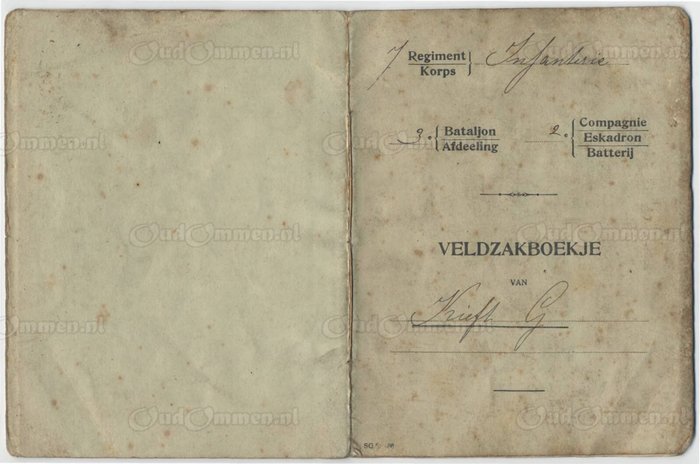 7 Regiment Korps Infanterie
3. Bataljon Afdeeling 2. Compagnie Eskadron Batterij
VELDZAKBOEKJE
VAN
Kieft G
OudOmmen.nl